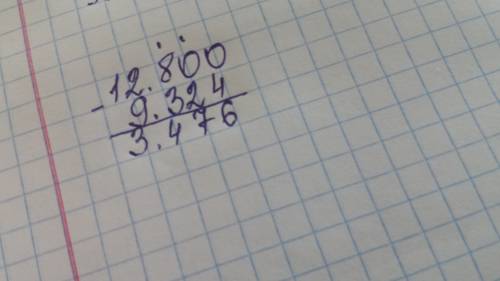 12.800
- 9.324
3.476